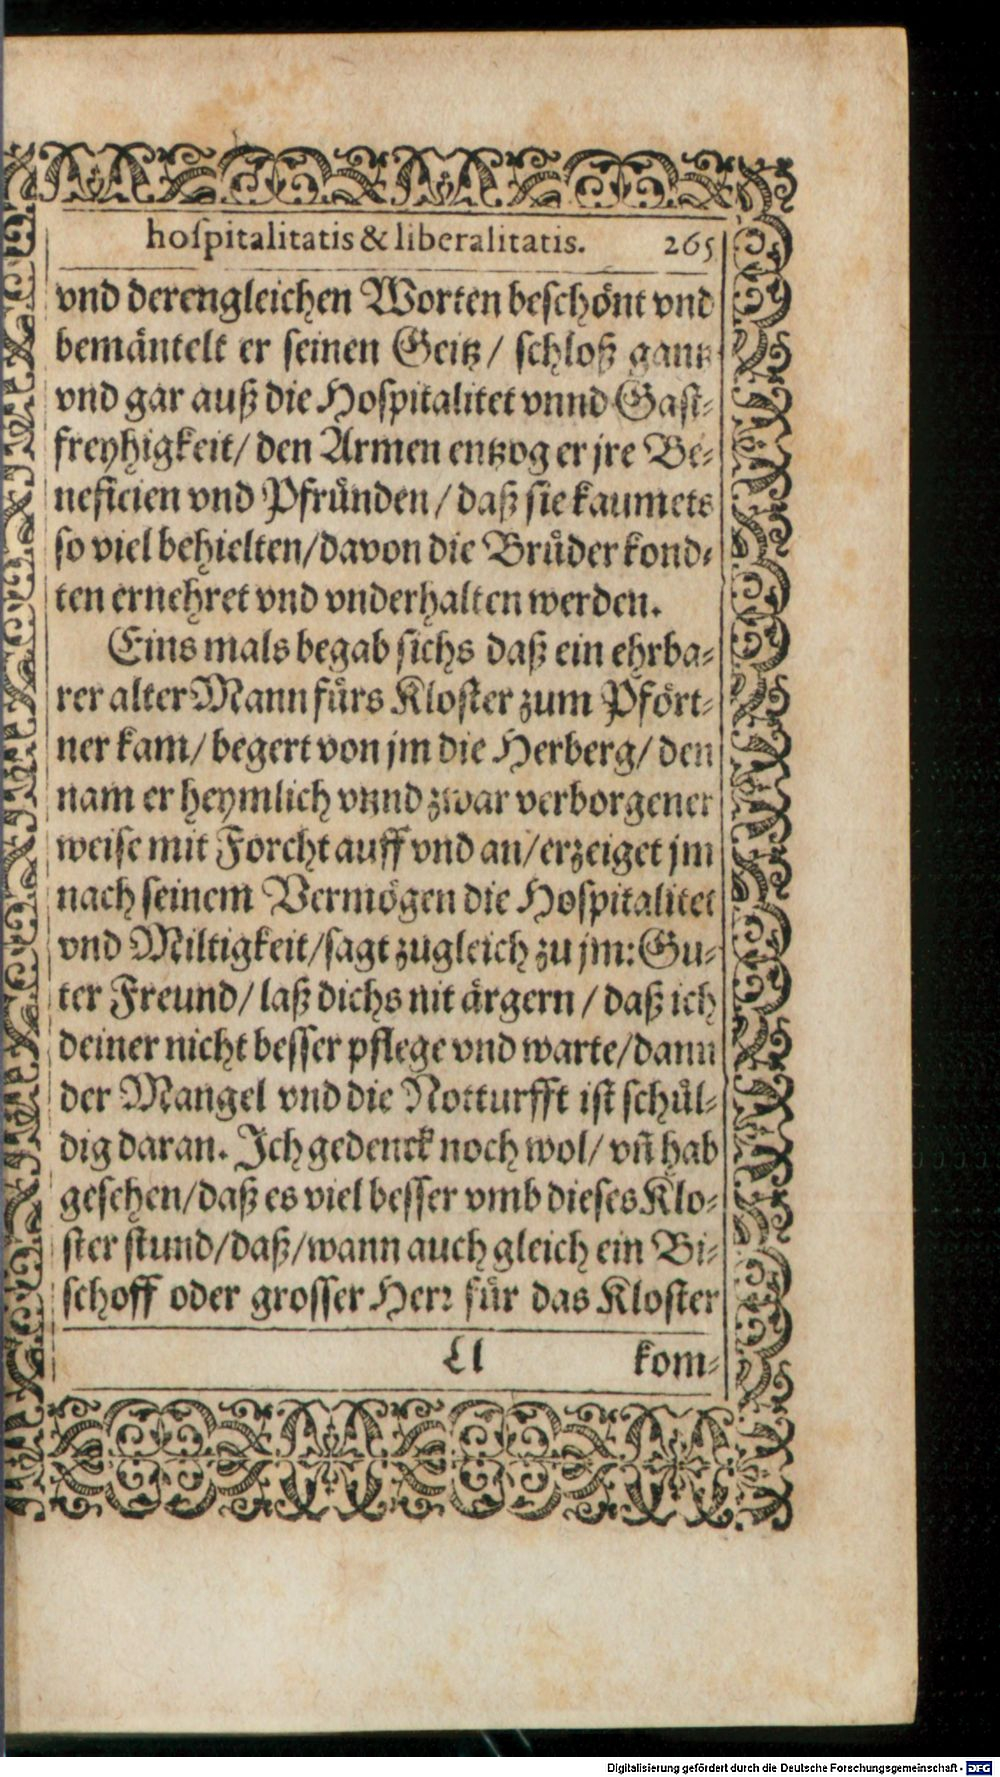 hoſpitalitatis & liberalitatis. 265
vnd derengleichen Worten beſchönt vnd
bemäntelt er ſeinen Geitz / ſchloß gantz
vnd gar auß die Hoſpitalitet vnnd Gaſt-
freyhigkeit/ den Armen entzog er jre Be-
neficien vnd Pfründen / daß ſie kaumets
ſo viel behielten/davon die Brüder kond-
ten ernehret vnd vnderhalten werden.
Eins mals begab ſichs daß ein ehrba-
rer alter Mann fürs Kloſter zum Pfört-
ner kam/ begert von jm die Herberg/ den
nam er heymlich vnnd zwar verborgener
weiſe mit Forcht auff vnd an/erzeiget jm
nach ſeinem Vermögen die Hoſpitalitet
vnd Miltigkeit/ſagt zugleich zu jm: Gu-
ter Freund/ laß dichs nit ärgern / daß ich
deiner nicht beſſer pflege vnd warte/dann
der Mangel vnd die Notturfft iſt ſchül-
dig daran. Ich gedenck noch wol/ vñ hab
geſehen/daß es viel beſſer vmb dieſes Klo-
ſter ſtund/daß/wann auch gleich ein Bi-
ſchoff oder groſſer Herꝛ für das Kloſter
Ll kom-
Digitalisierung gefördert durch die Deutsche Forschungsgemeinschaft - DFG